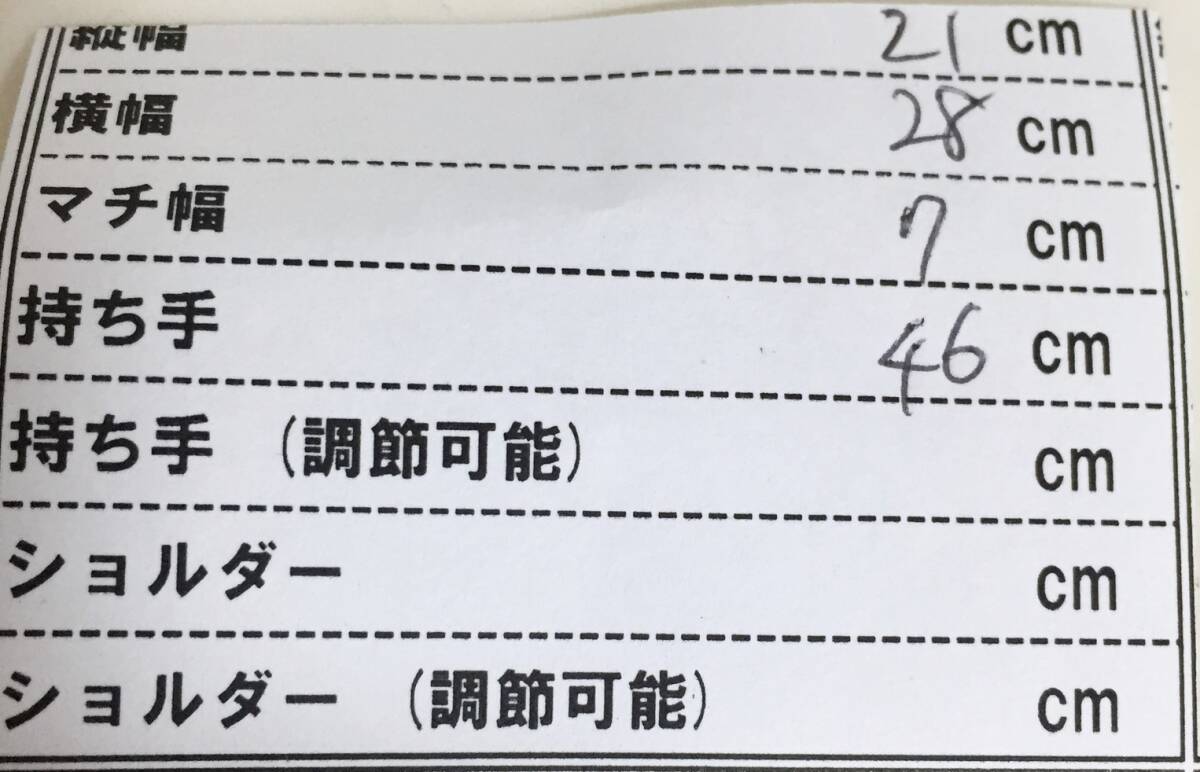 縦幅 21 cm
横幅 28 cm
マチ幅 7 cm
持ち手 46 cm
持ち手 (調節可能) cm
ショルダー cm
ショルダー (調節可能) cm